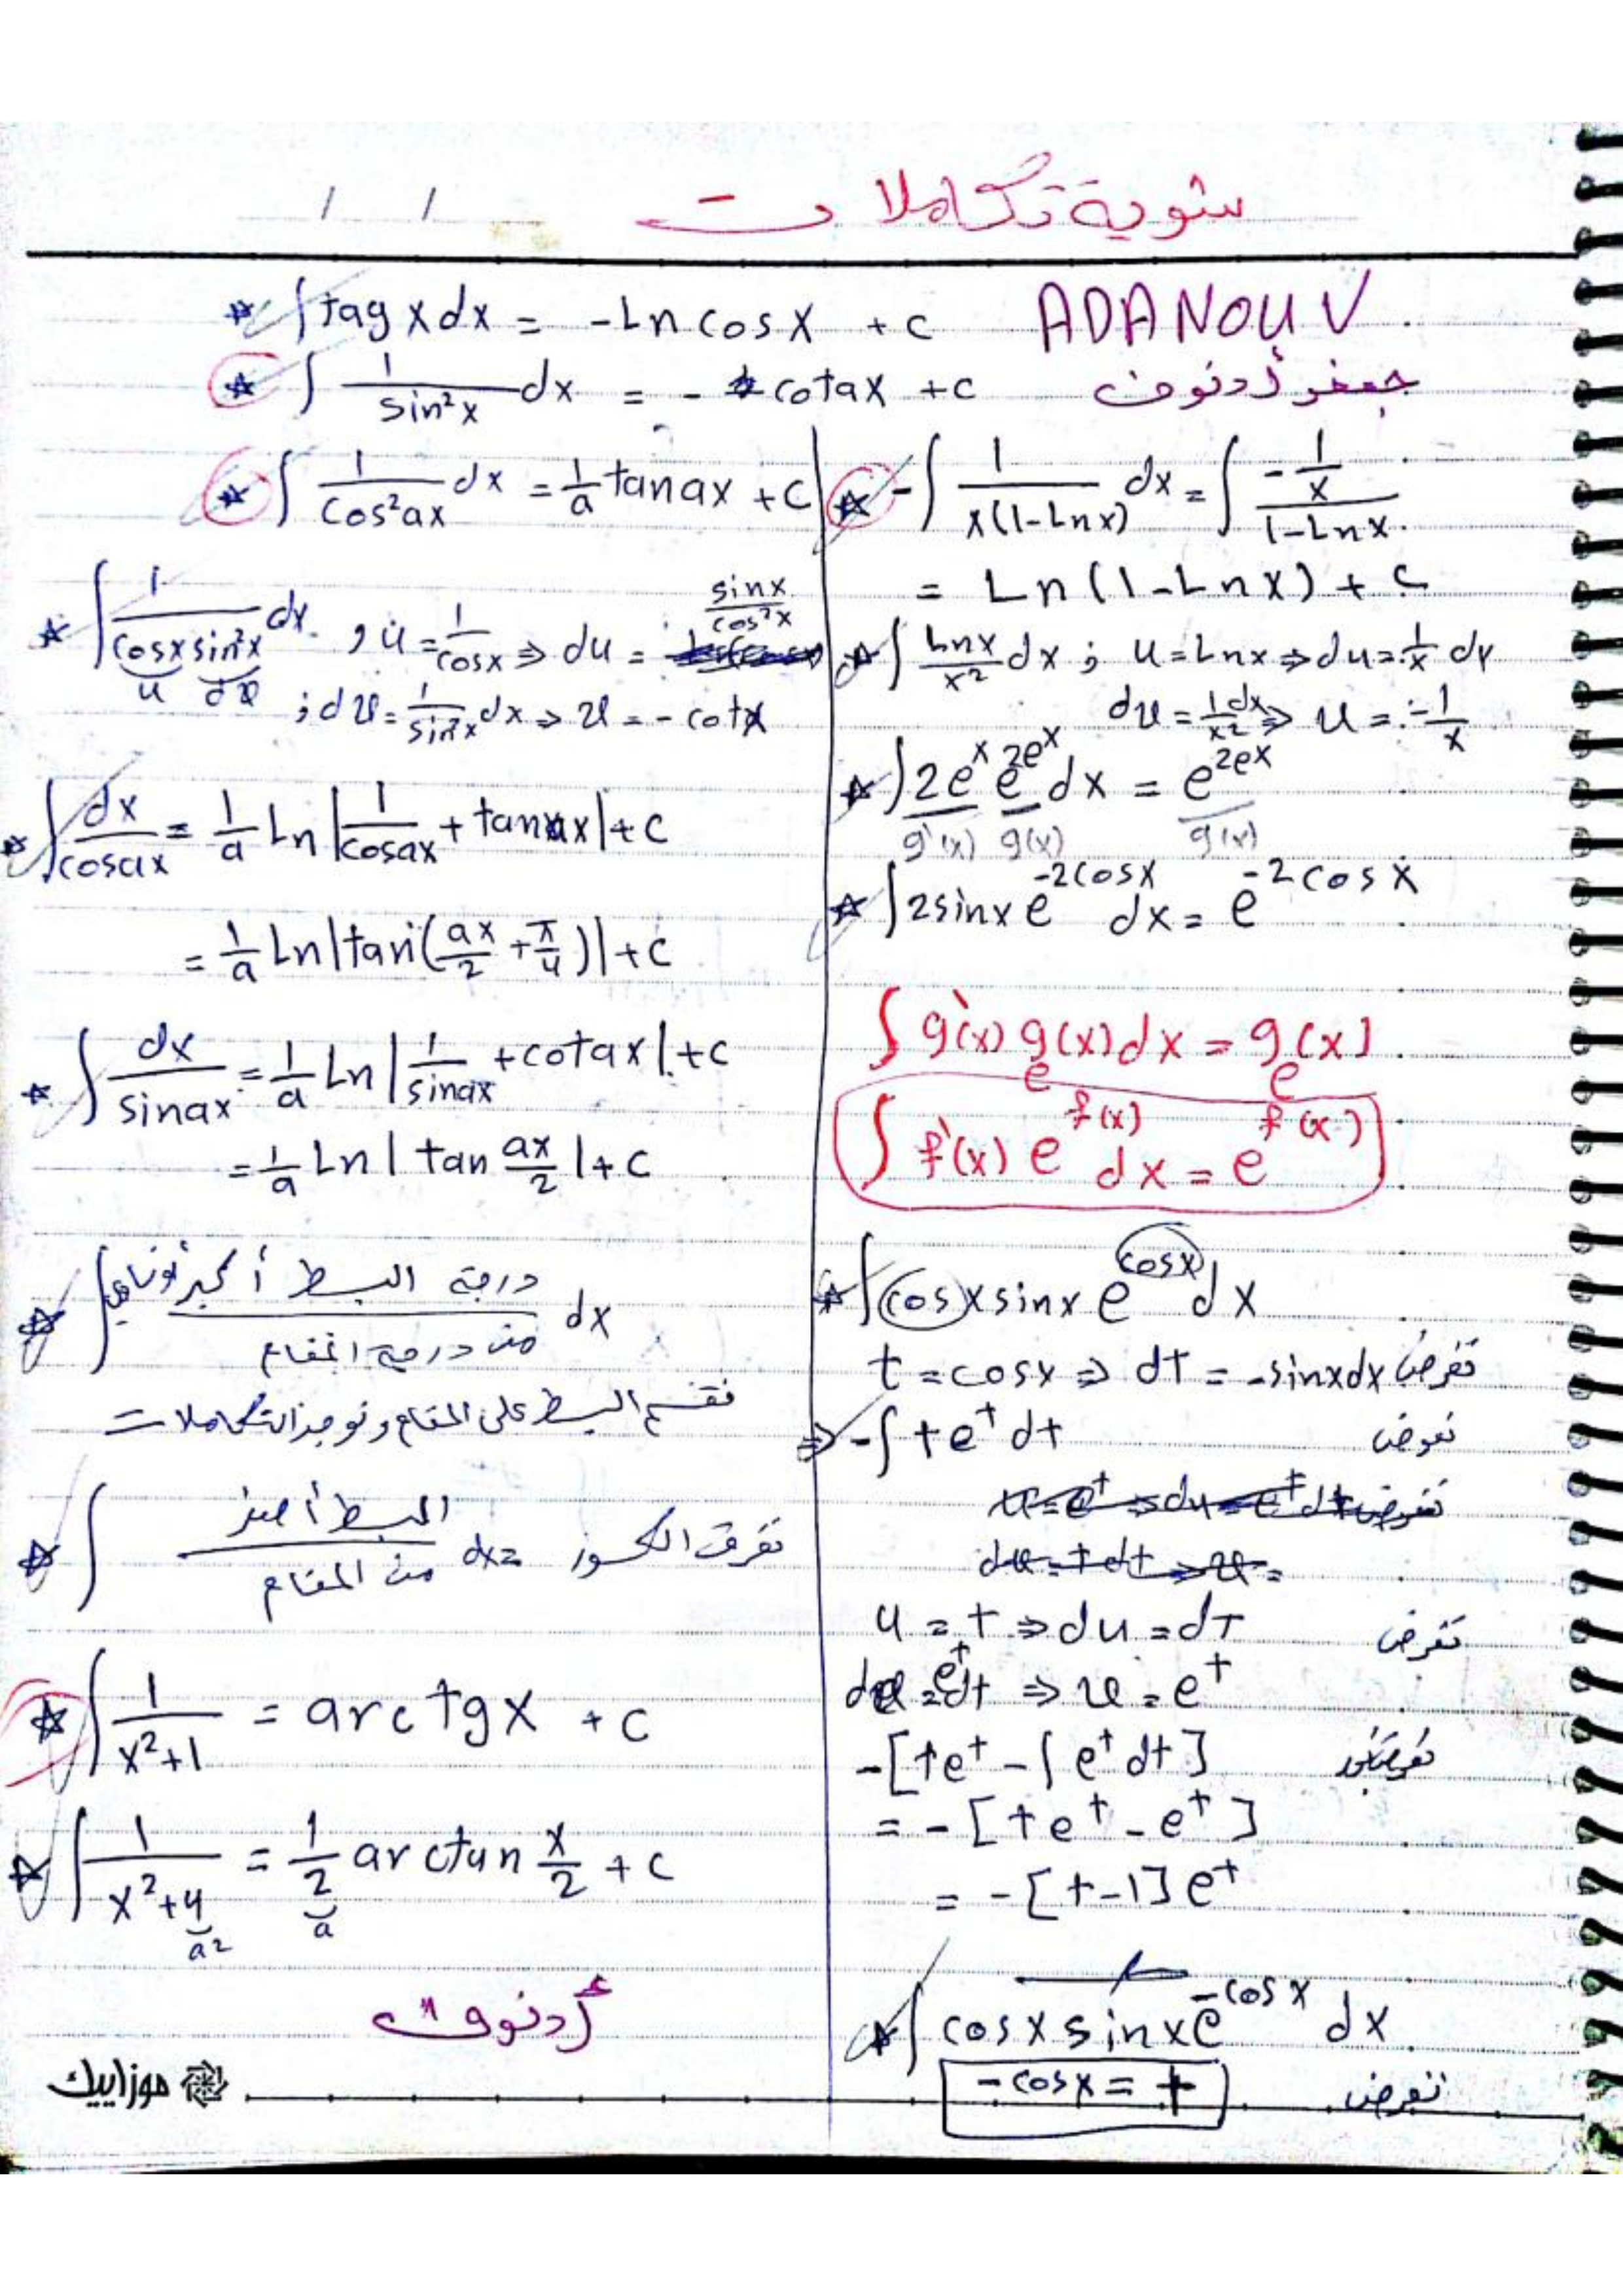 شوية تكاملات
/ /
∫ tag x dx = -Ln cos x + c
ADANOUV
∫ 1/sin²x dx = - cotax + c
جعفر أدنوف
∫ 1/cos²ax dx = 1/a tanax + c
∫ 1/(cosx sin²x) dx , u = 1/cosx ⇒ du = sinx/cos²x
u dv ; dv = 1/sin²x dx ⇒ v = -cotx
∫ dx/cosax = 1/a Ln |1/cosax + tanax| + c
= 1/a Ln |tan(ax/2 + π/4)| + c
∫ dx/sinax = 1/a Ln |1/sinax + cotax| + c
= 1/a Ln | tan ax/2 | + c
∫ درجة البسط أكبر أو تساوي / من درجة المقام dx
نقسم البسط على المقام ونوجد التكاملات
∫ البسط أصغر / من المقام dx = نفرق الكسور
∫ 1/(x²+1) = arctgx + c
∫ 1/(x²+4) = 1/2 arctan x/2 + c
a² a
أدنوف
موزاييك
-∫ 1/(x(1-Lnx)) dx = ∫ (-1/x)/(1-Lnx)
= Ln(1-Lnx) + c
∫ Lnx/x² dx ; u = Lnx ⇒ du = 1/x dx
dv = 1/x² dx ⇒ v = -1/x
∫ 2e^x e^{2e^x} dx = e^{2e^x}
g'(x) g(x) g(x)
∫ 2sinx e^{-2cosx} dx = e^{-2cosx}
∫ g'(x) g(x) dx = g(x)
e e
∫ f'(x) e^{f(x)} dx = e^{f(x)}
∫ cosx sinx e^{cosx} dx
t = cosx ⇒ dt = -sinx dx نفرض
⇒ -∫ t e^t dt نعوض
u = t ⇒ du = dt نفرض
dv = e^t dt ⇒ v = e^t
-[te^t - ∫ e^t dt]
= -[te^t - e^t]
= -[t-1] e^t
∫ cosx sinx e^{-cosx} dx
-cosx = t نفرض